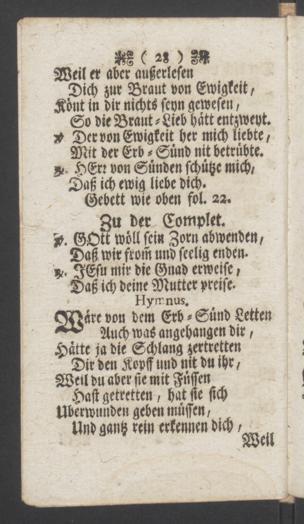 ( 28 )
Weil er aber außerlesen
Dich zur Braut von Ewigkeit,
Könt in dir nichts seyn gewesen,
So die Braut-Lieb hätt entzweyt.
℣. Der von Ewigkeit her mich liebte,
Mit der Erb-Sünd nit betrübte.
℟. HErr von Sünden schütze mich,
Daß ich ewig liebe dich.
Gebett wie oben fol. 22.
Zu der Complet.
℣. GOtt wöll sein Zorn abwenden,
Daß wir from̃ und seelig enden.
℟. JEsu mir die Gnad erweise,
Daß ich deine Mutter preise.
Hymnus.
Wäre von dem Erb-Sünd Letten
Auch was angehangen dir,
Hätte ja die Schlang zertretten
Dir den Kopff und nit du ihr,
Weil du aber sie mit Füssen
Hast getretten, hat sie sich
Uberwunden geben müssen,
Und gantz rein erkennen dich,
Weil